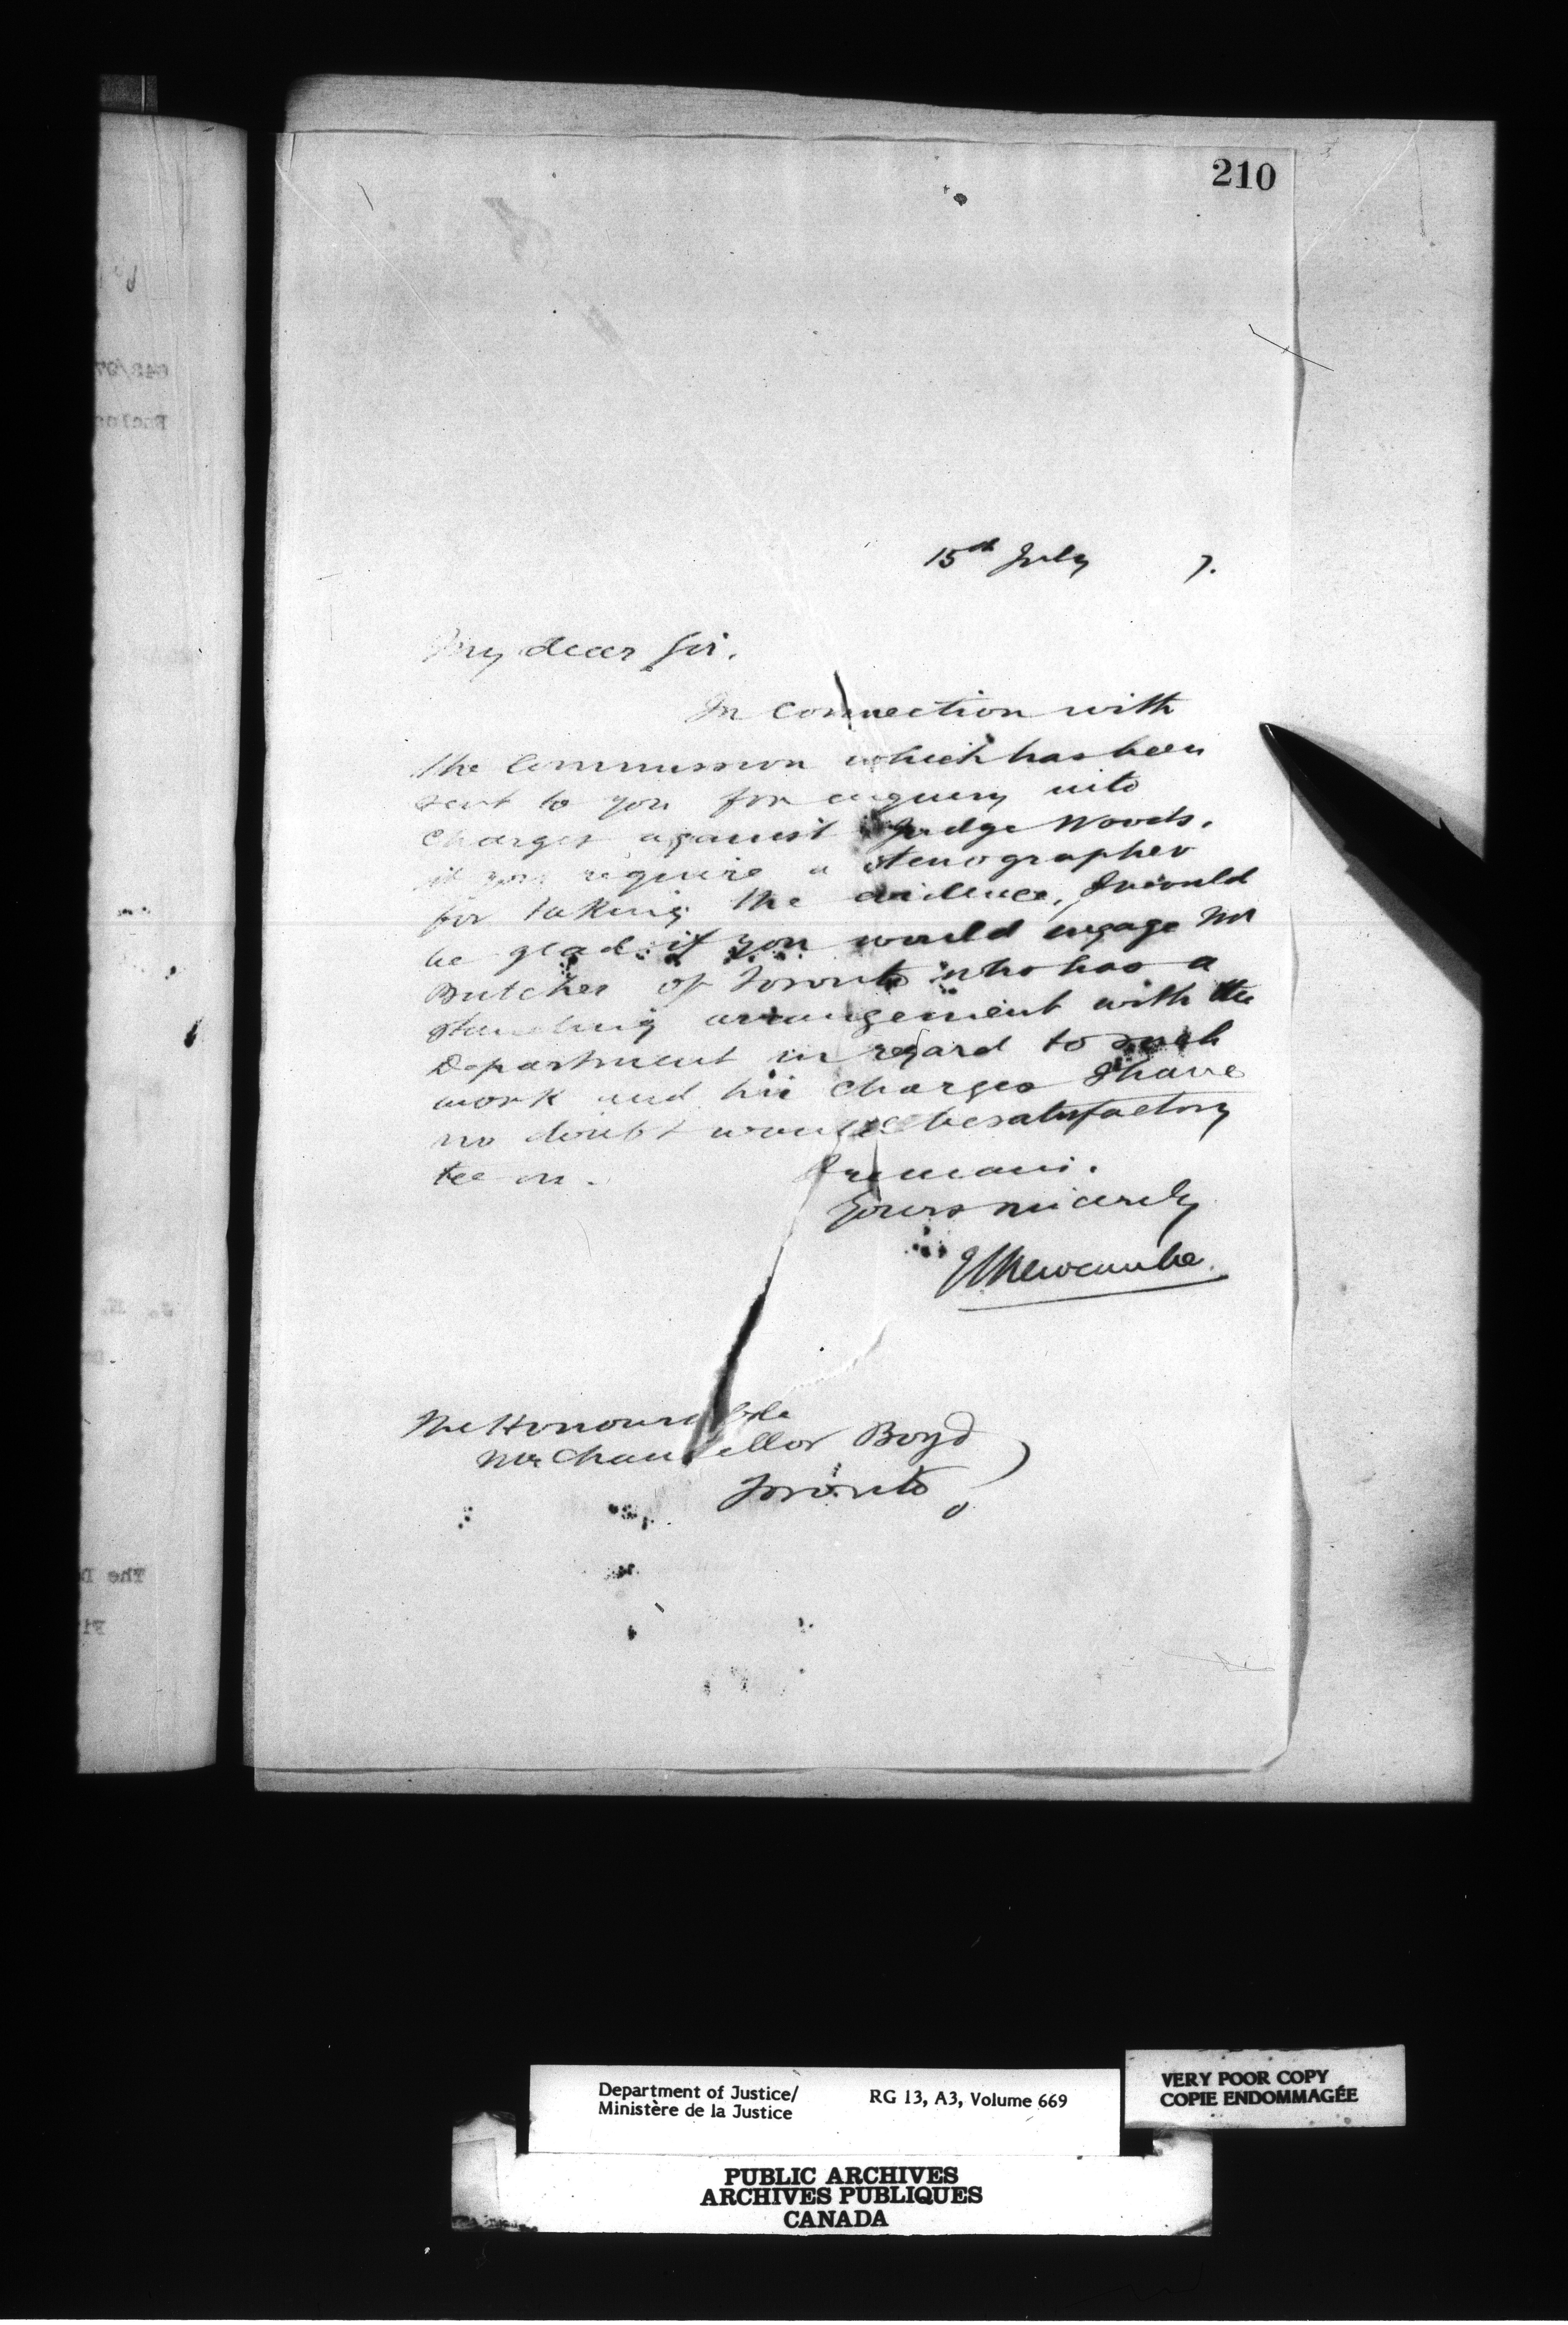 210
15th July 7.
My dear Sir.
In connection with
the Commission which has been
sent to you for enquiry into
charges against Judge Woods.
if you require a stenographer
for taking the evidence, I would
be glad if you would engage Mr
Butcher of Toronto who has a
standing arrangement with the
Department in regard to such
work and his charges I have
no doubt would be satisfactory
I remain.
Yours sincerely
Newcombe.
The Honourable
Mr Chancellor Boyd
Toronto
Department of Justice/ RG 13, A3, Volume 669
Ministère de la Justice
VERY POOR COPY
COPIE ENDOMMAGÉE
PUBLIC ARCHIVES
ARCHIVES PUBLIQUES
CANADA